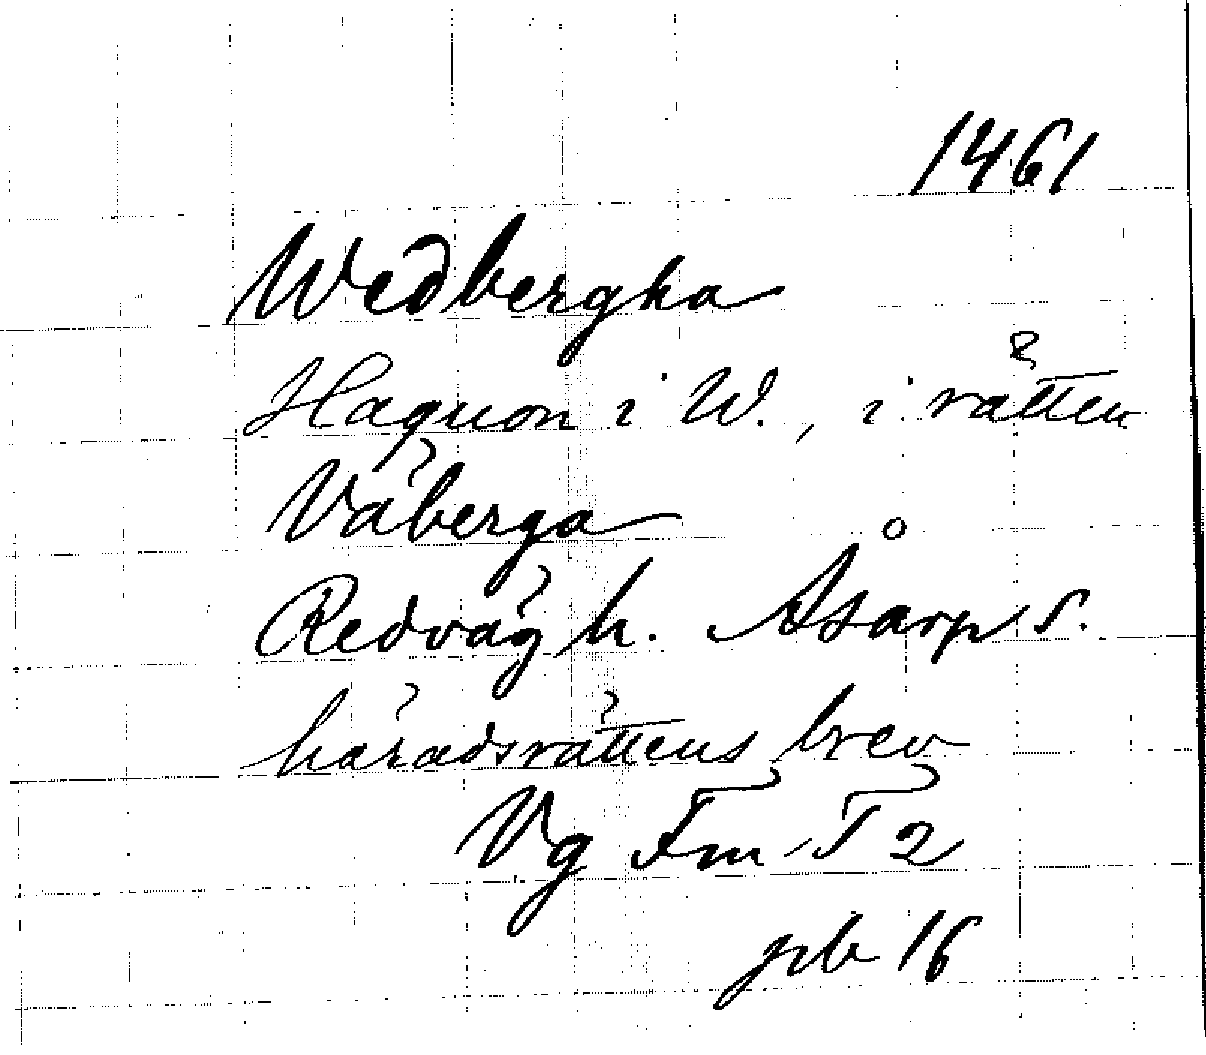 1461
Wedbergha
Haquon i W., i rätten
Våberga
Redväg h. Åsarp s.
häradsrättens brev
Vg Fm T 2
plb 16